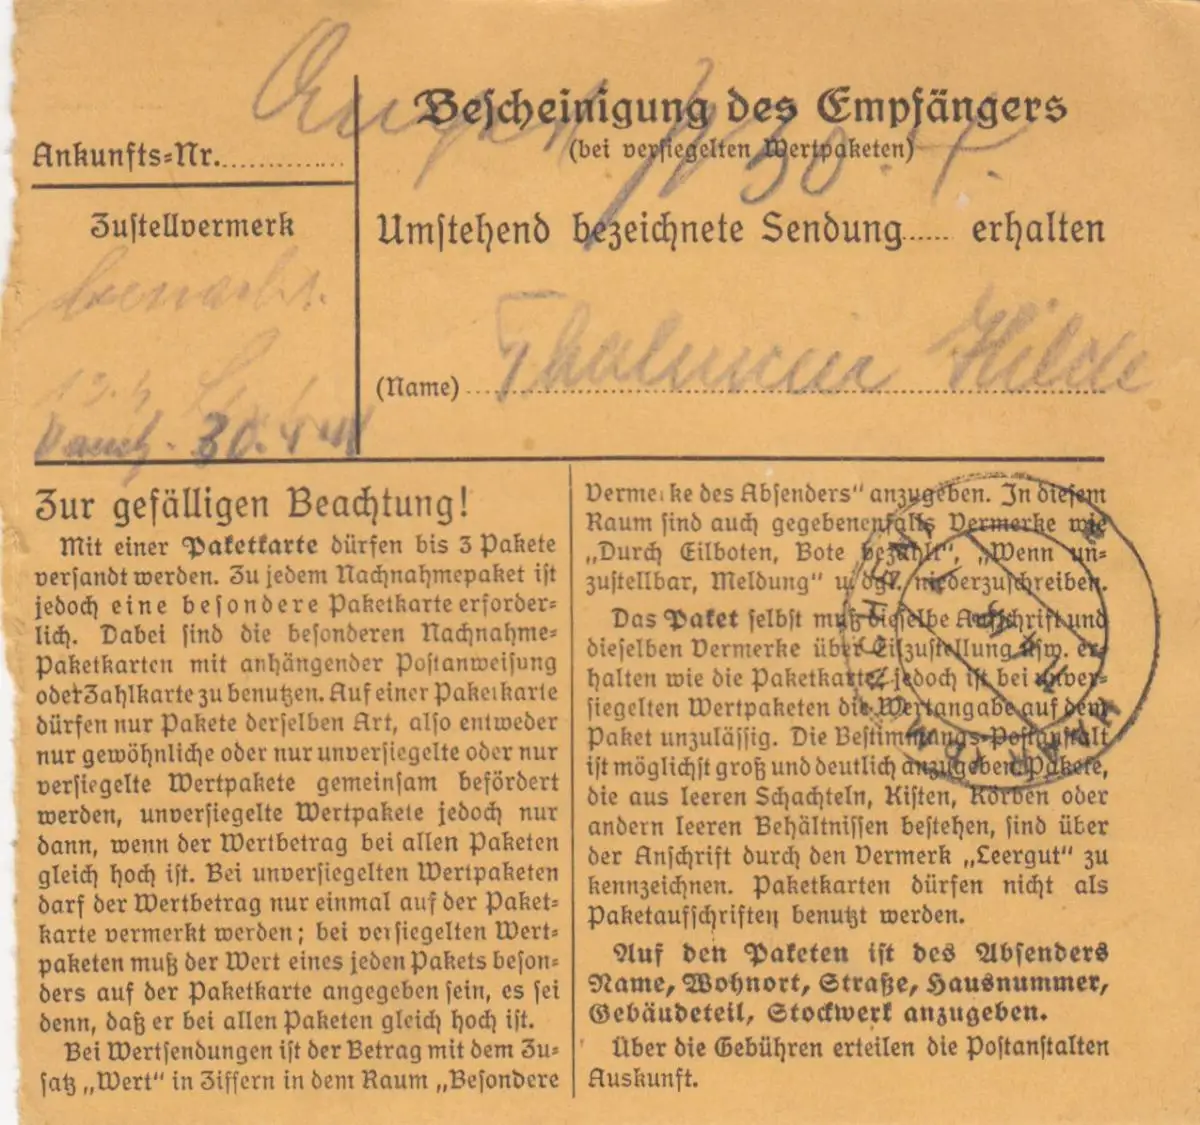 Bescheinigung des Empfängers
(bei versiegelten Wertpaketen)
Ankunfts-Nr.
30. 4.
Zustellvermerk
Umstehend bezeichnete Sendung...... erhalten
benachr.
(Name) Thalmeier Hilde
30. 4.
Zur gefälligen Beachtung!
Mit einer Paketkarte dürfen bis 3 Pakete
versandt werden. Zu jedem Nachnahmepaket ist
jedoch eine besondere Paketkarte erforder-
lich. Dabei sind die besonderen Nachnahme-
Paketkarten mit anhängender Postanweisung
oder Zahlkarte zu benutzen. Auf einer Paketkarte
dürfen nur Pakete derselben Art, also entweder
nur gewöhnliche oder nur unversiegelte oder nur
versiegelte Wertpakete gemeinsam befördert
werden, unversiegelte Wertpakete jedoch nur
dann, wenn der Wertbetrag bei allen Paketen
gleich hoch ist. Bei unversiegelten Wertpaketen
darf der Wertbetrag nur einmal auf der Paket-
karte vermerkt werden; bei versiegelten Wert-
paketen muß der Wert eines jeden Pakets beson-
ders auf der Paketkarte angegeben sein, es sei
denn, daß er bei allen Paketen gleich hoch ist.
Bei Wertsendungen ist der Betrag mit dem Zu-
satz „Wert“ in Ziffern in dem Raum „Besondere
Vermerke des Absenders“ anzugeben. In diesem
Raum sind auch gegebenenfalls Vermerke wie
„Durch Eilboten, Bote bezahlt“, „Wenn un-
zustellbar, Meldung“ u. dgl. niederzuschreiben.
Das Paket selbst muß dieselbe Aufschrift und
dieselben Vermerke über Eilzustellung usw. er-
halten wie die Paketkarte, jedoch ist bei unver-
siegelten Wertpaketen die Wertangabe auf dem
Paket unzulässig. Die Bestimmungs-Postanstalt
ist möglichst groß und deutlich anzugeben. Pakete,
die aus leeren Schachteln, Kisten, Körben oder
andern leeren Behältnissen bestehen, sind über
der Anschrift durch den Vermerk „Leergut“ zu
kennzeichnen. Paketkarten dürfen nicht als
Paketaufschriften benutzt werden.
Auf den Paketen ist des Absenders
Name, Wohnort, Straße, Hausnummer,
Gebäudeteil, Stockwerk anzugeben.
Über die Gebühren erteilen die Postanstalten
Auskunft.